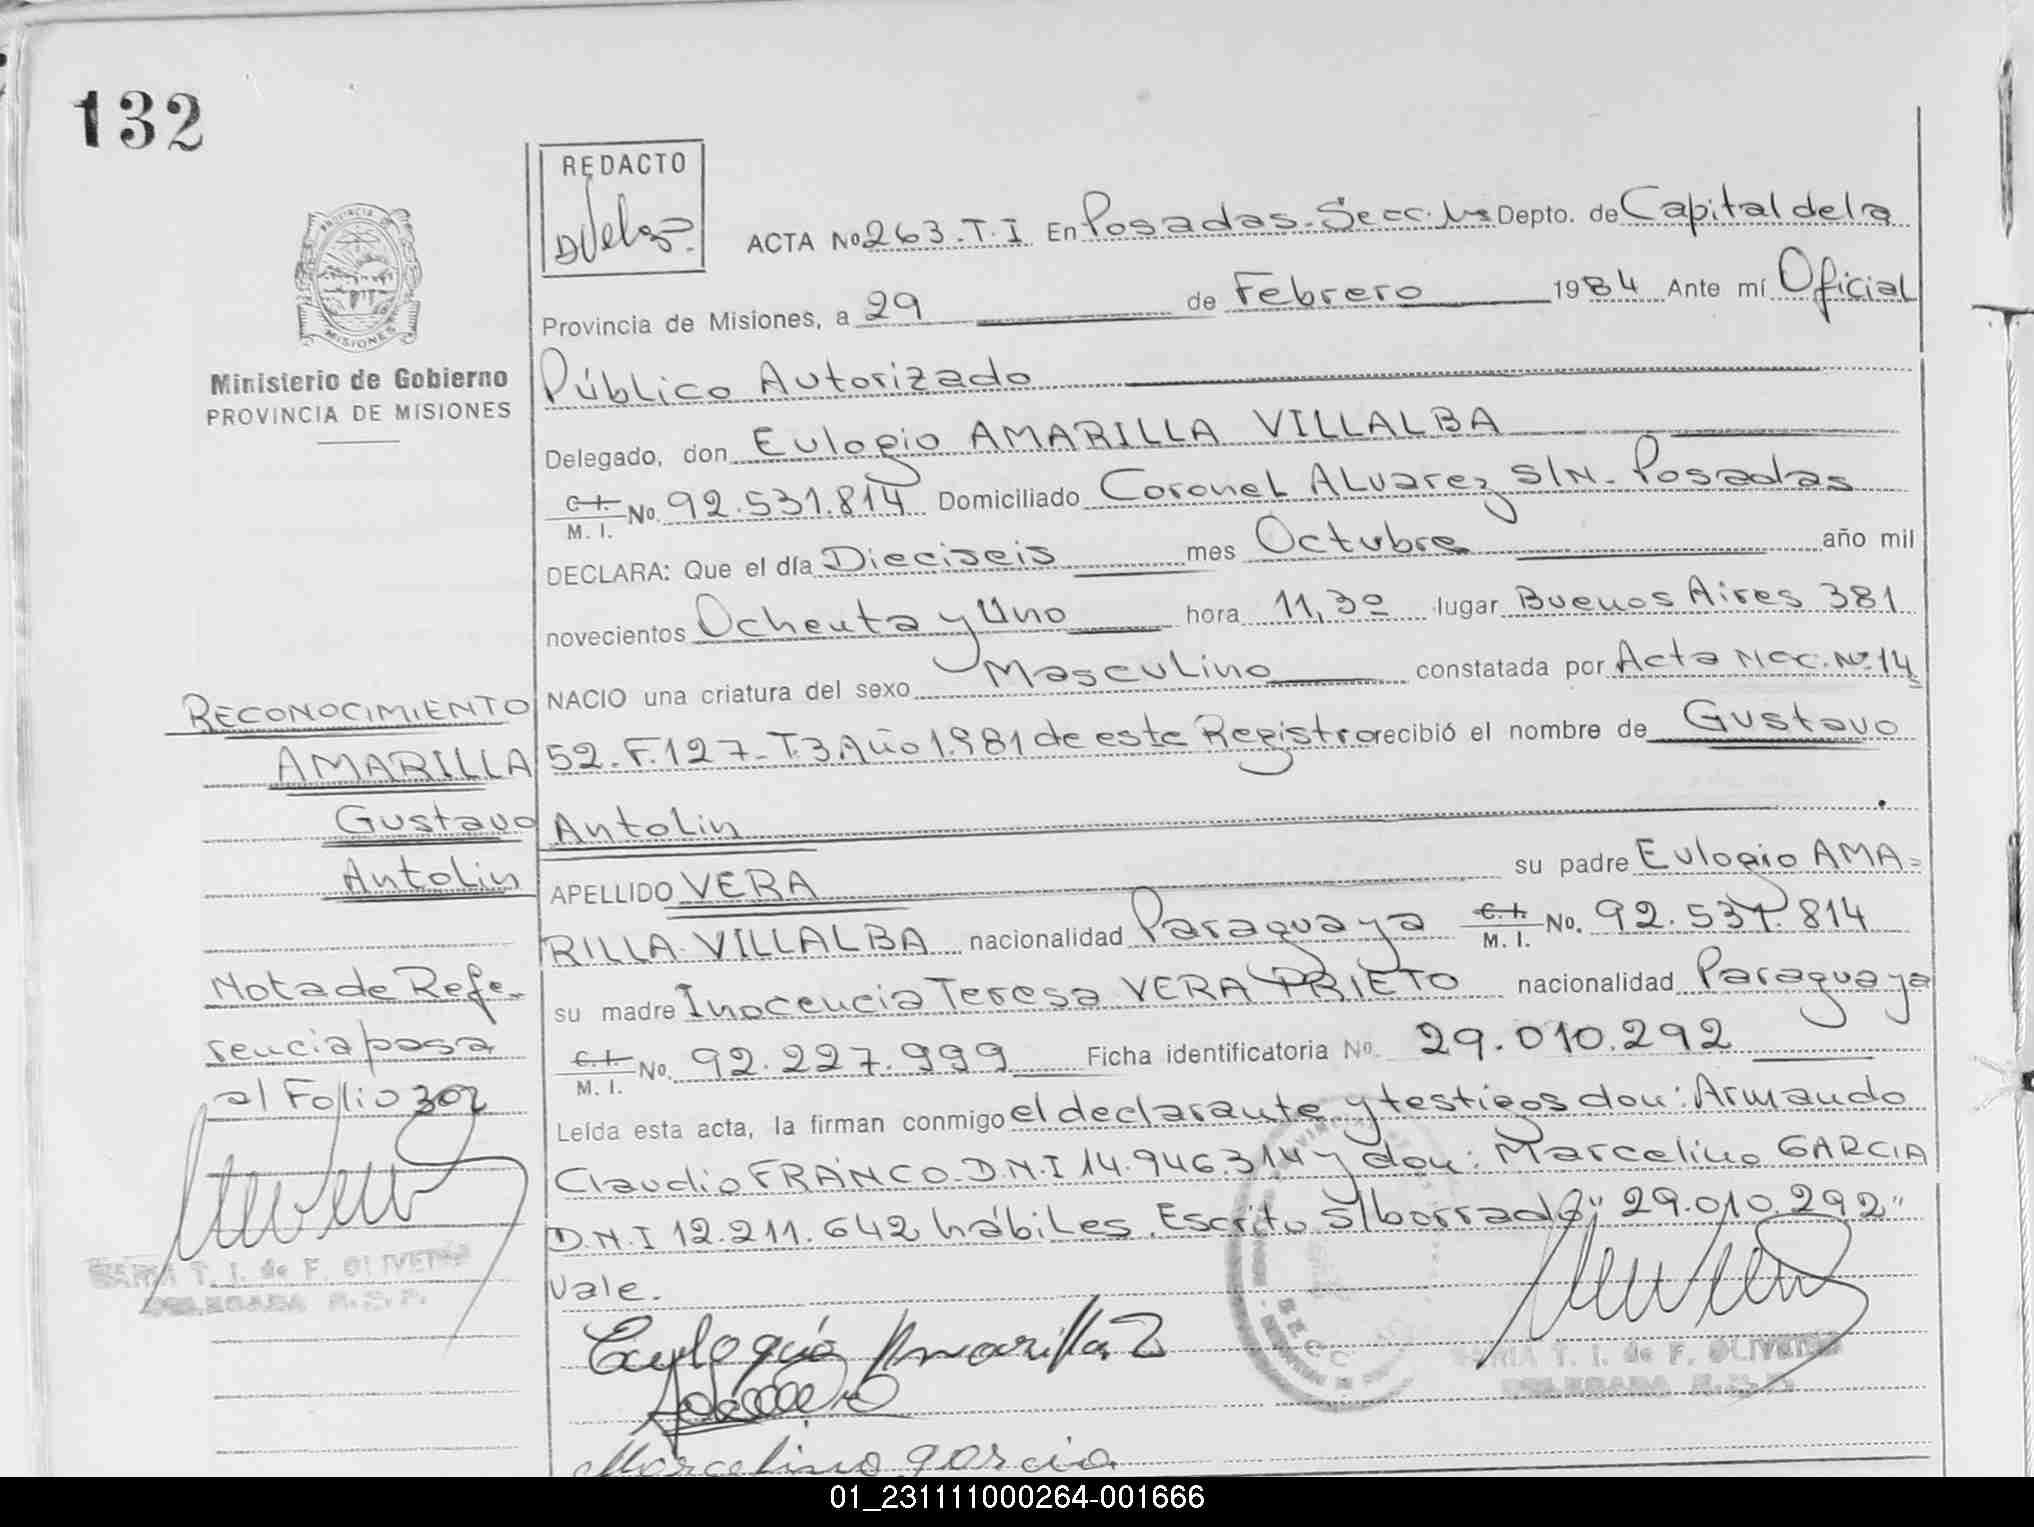 132
REDACTO
ACTA No 263.T.I En Posadas-Secc. 1ra Depto. de Capital de la
Provincia de Misiones, a 29 de Febrero 1984 Ante mí Oficial
PROVINCIA DE
MISIONES
Ministerio de Gobierno
PROVINCIA DE MISIONES
Público Autorizado
Delegado, don Eulogio AMARILLA VILLALBA
C.I. M. I. No. 92.531.814 Domiciliado Coronel ALvarez S/N. Posadas
DECLARA: Que el día Dieciseis mes Octubre año mil
novecientos Ochenta y Uno hora 11,30 lugar Buenos Aires 381
NACIO una criatura del sexo Masculino constatada por Acta Nac. Nº 14
RECONOCIMIENTO
52. F. 127-T.3 Año 1.981 de este Registro recibió el nombre de Gustavo
AMARILLA
Gustavo
Antolin
Antolin
APELLIDO VERA su padre Eulogio AMA=
RILLA-VILLALBA nacionalidad Paraguaya C.I. M. I. No. 92.531.814
su madre Inocencia Teresa VERA PRIETO nacionalidad Paraguaya
C.I. M. I. No. 92.227.999 Ficha identificatoria No. 29.010.292
Nota de Refe-
rencia pasa
al Folio 302
Leída esta acta, la firman conmigo el declarante y testigos don: Armando
Claudio FRANCO-D.N.I 14.946.314 y don: Marcelino GARCIA
D.N.I 12.211.642 hábiles. Escrito S/borrado "29.010.292"
Vale.
MARIA T. I. de F. OLIVERA
DELEGADA R.S.P.
Eulogio Amarilla
MARIA T. I. de F. OLIVERA
DELEGADA R.S.P.
Marcelino garcia
01_231111000264-001666